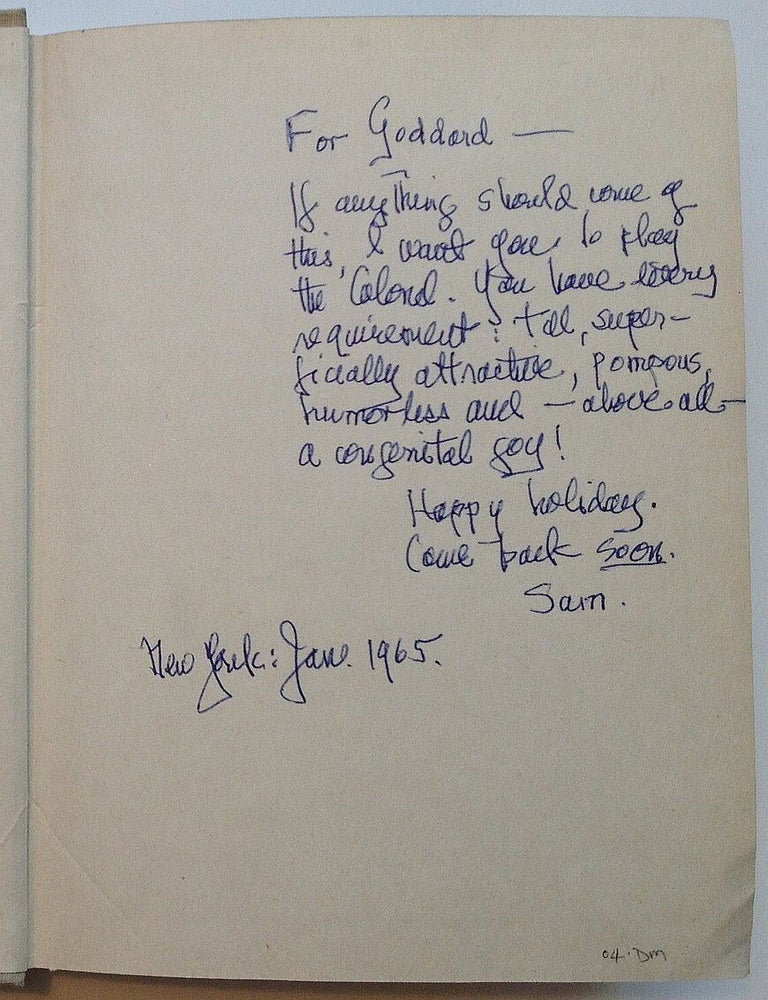 For Goddard —
If anything should come of
this, I want you to play
the Colonel. You have every
requirement: tall, super-
ficially attractive, pompous,
humorless and — above all —
a congenital goy!
Happy holiday.
Come back soon.
Sam.
New York: Jan. 1965.
04. Dm